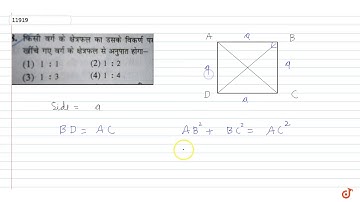 11919
किसी वर्ग के क्षेत्रफल का उसके विकर्ण पर
खींचे गए वर्ग के क्षेत्रफल से अनुपात होगा-
(1) 1 : 1 (2) 1 : 2
(3) 1 : 3 (4) 1 : 4
A a B
a a
D a C
Side = a
BD = AC AB² + BC² = AC²